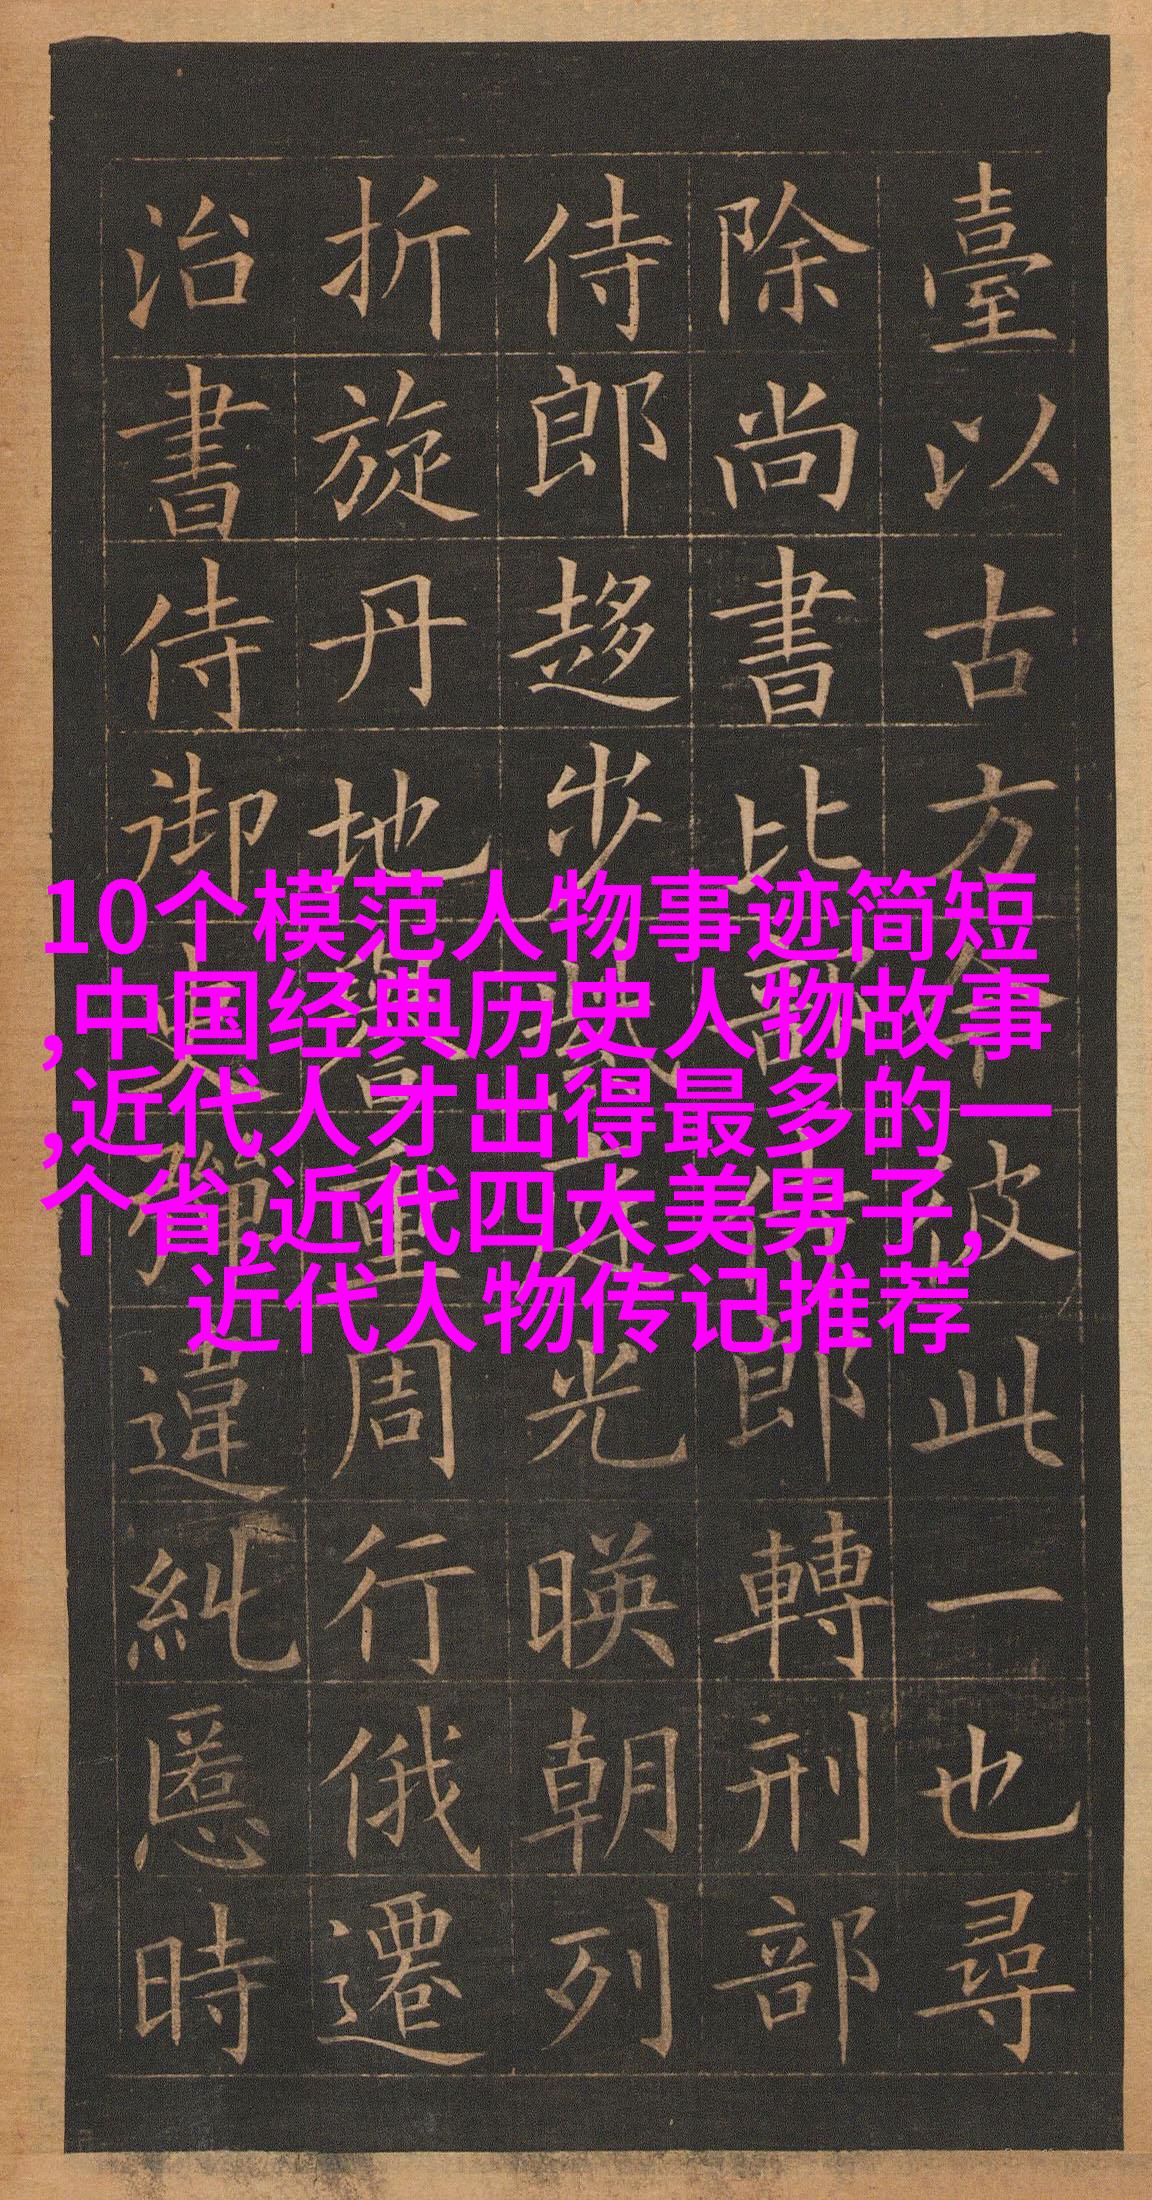 臺以古方今彼此一也尋
除尚書比部侍郎轉刑部
侍郎趍步光暎朝列
折旋丹地譽重周行俄遷
治書侍御史彈違糺慝時
10个模范人物事迹简短
,中国经典历史人物故事
,近代人才出得最多的一
个省,近代四大美男子,
近代人物传记推荐